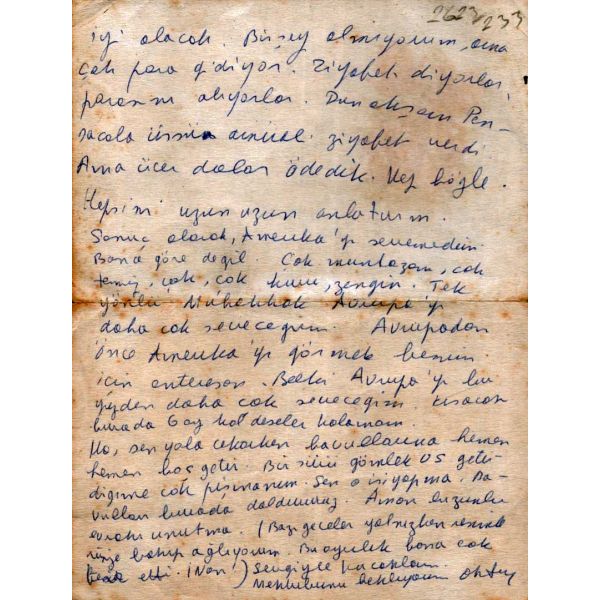 2623/233
iyi olacak. Bir şey almıyorum, ama
çok para gidiyor. Ziyafet diyorlar,
parasını alıyorlar. Dün akşam Pen-
sacola üssün amirali ziyafet verdi.
Ama üçer dolar ödedik. Hep böyle.
Hepsini uzun uzun anlatırım.
Sonuç olarak, Amerika'yı sevemedim.
Bana göre değil. Çok muntazam, çok
temiz, çok, çok kuru, zengin. Tek
yönlü. Muhakkak Avrupa'yı
daha çok seveceğim. Avrupadan
önce Amerika'yı görmek benim
için enteresan. Belki Avrupa'yı bu
yüzden daha çok seveceğim. Kısacası
burada 6 ay kal deseler kalamam.
Ha, sen yola çıkarken bavullarına hemen
hemen boş getir. Bir sürü gömlek getir-
diğime çok pişmanım. Sen o işi yapma. Ba-
vulları burada doldururuz. Aman lüzumlu
evrakı unutma. (Bazı geceler yalnızken resmi
bakıp ağlıyorum. Bu ayrılık bana çok
etti. ) Sevgiyle kucaklarım.
Mektubunu bekliyorum Oktay